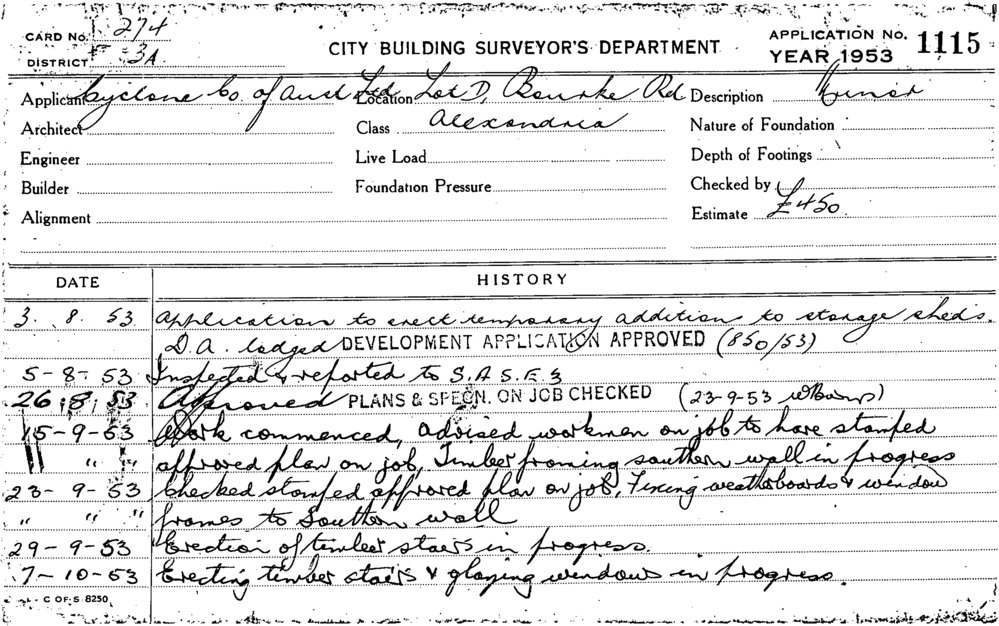 CARD No. 274
DISTRICT 3A
CITY BUILDING SURVEYOR'S DEPARTMENT
APPLICATION No. 1115
YEAR 1953
Applicant Cyclone Co. of Aust Ltd Location Lot D, Bourke Rd Description Minor
Architect Class Alexandria Nature of Foundation
Engineer Live Load Depth of Footings
Builder Foundation Pressure Checked by
Alignment Estimate £450
DATE HISTORY
3. 8. 53 Application to erect temporary addition to storage sheds.
D.A. lodged DEVELOPMENT APPLICATION APPROVED (850/53)
5-8-53 Inspected & reported to S.A.S.E.
26.8.53 Approved PLANS & SPECN. ON JOB CHECKED (23-9-53
15-9-53 Work commenced, advised workmen on job to have stamped
" " " approved plan on job, Timber framing southern wall in progress
23-9-53 Checked stamped approved plan on job, Fixing weatherboards & window
" " " frames to Southern wall
29-9-53 Erection of timber stairs in progress.
7-10-53 Erecting timber stairs & glazing windows in progress.
C OF S 8250